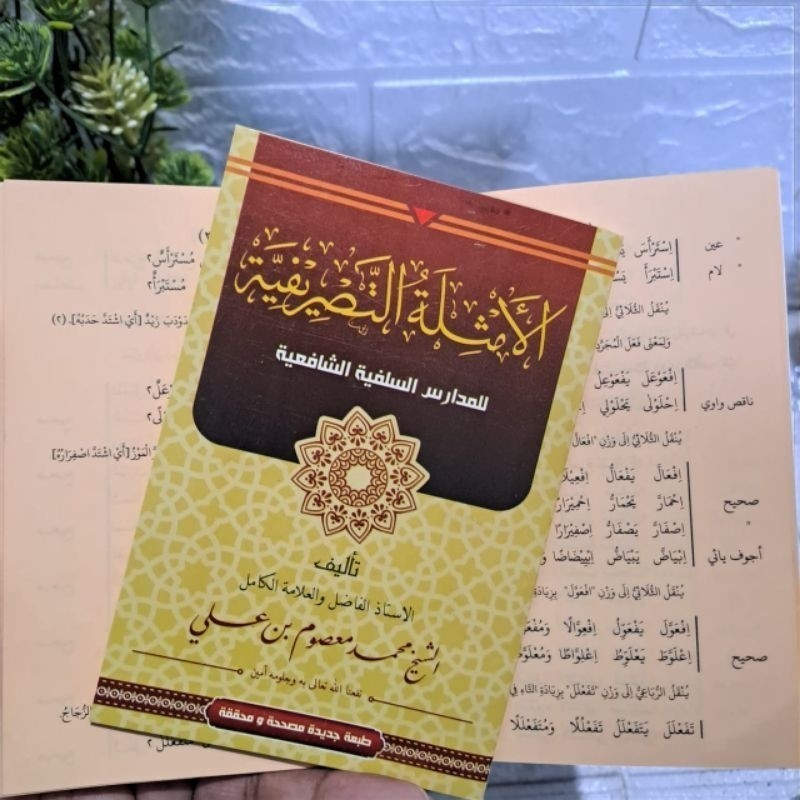 الأَمْثِلَةُ التَّصْرِيفِيَّة
للمدارس السلفية الشافعية
تأليف
الاستاذ الفاضل والعلامة الكامل
الشيخ محمد معصوم بن علي
نفعنا الله تعالى به وبعلومه آمين
طبعة جديدة مصححة و محققة
عين
اِسْتَرْأَسَ
لام
اِسْتَبْرَأَ
يُنْقَلُ الثُّلَاثِيُّ
وَلِمَعْنَى فَعَلَ الْمُجَرَّد
اِفْعَوْعَلَ يَفْعَوْعِلُ
ناقص واوي
اِحْلَوْلَى يَحْلَوْلِي
يُنْقَلُ الثُّلَاثِيُّ إِلَى وَزْنِ
اِفْعَالَّ يَفْعَالُّ اِفْعِيلَا
صحيح
اِحْمَارَّ يَحْمَارُّ اِحْمِيرَارًا
" اِصْفَارَّ يَصْفَارُّ اِصْفِيْرَارًا
أجوف يائي
اِبْيَاضَّ يَبْيَاضُّ اِبْيِيضَاضًا
يُنْقَلُ الثُّلَاثِيُّ إِلَى وَزْنِ "اِفْعَوَّلَ" بِزِيَادَةِ
اِفْعَوَّلَ يَفْعَوِّلُ اِفْعِوَّالًا
صحيح
اِعْلَوَّطَ يَعْلَوِّطُ اِعْلِوَّاطًا
يُنْقَلُ الرُّبَاعِيُّ إِلَى وَزْنِ "تَفَعْلَلَ" بِزِيَادَةِ التَّاءِ
تَفَعْلَلَ يَتَفَعْلَلُ تَفَعْلُلًا وَمُتَفَعْلَلًا
مُسْتَرْأَسٌ ٢
مُسْتَبْرَأٌ ٢
زَيْدٌ [أَيْ اِشْتَدَّ حَدَبُهُ]. (٢)
الْمَوْزُ [أَيْ اشْتَدَّ اصْفِرَارُهُ]
الزُّجَاجُ.